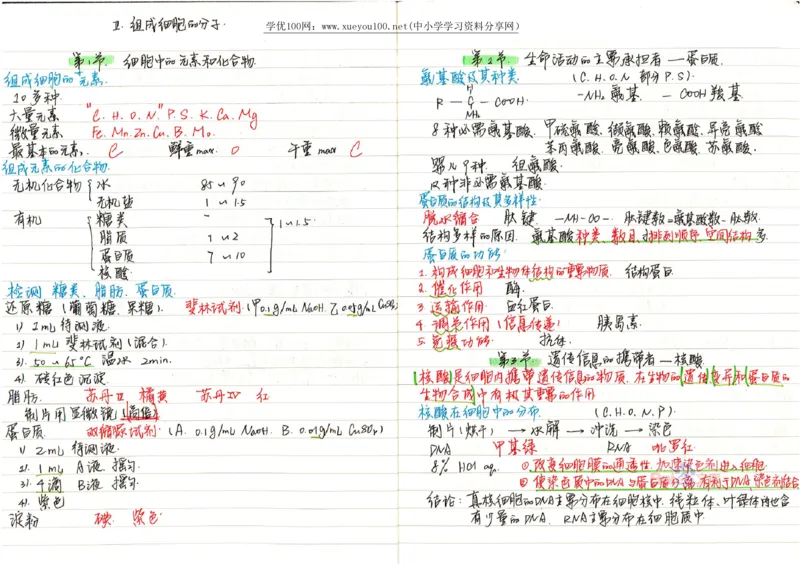 学优100网:www.xueyou100.net(中小学学习资料分享网)
Ⅱ. 组成细胞的分子.
第1节. 细胞中的元素和化合物.
组成细胞的元素.
20多种.
大量元素 "C. H. O. N" P. S. K. Ca. Mg
微量元素 Fe. Mn. Zn. Cu. B. Mo.
最基本的元素. C 鲜重max. O 干重max C
组成元素的化合物.
无机化合物 水 85~90
无机盐 1~1.5
有机 糖类 1~1.5.
脂质 1~2
蛋白质 7~10
核酸
检测 糖类. 脂肪. 蛋白质.
还原糖(葡萄糖. 果糖). 斐林试剂.(甲0.1g/mL NaOH. 乙0.05g/mL CuSO₄)
1) 2mL待测液.
2) 1mL斐林试剂(混合).
3) 50~65°C 温水 2min.
4) 砖红色沉淀.
脂肪. 苏丹Ⅲ 橘黄 苏丹Ⅳ 红
制片用显微镜(高倍)
蛋白质. 双缩脲试剂.(A. 0.1g/mL NaOH. B. 0.01g/mL CuSO₄)
1) 2mL 待测液.
2) 1mL A液 摇匀.
3) 4滴 B液 摇匀.
4) 紫色
淀粉 碘. 紫色.
第2节. 生命活动的主要承担者 — 蛋白质.
氨基酸及其种类. (C. H. O. N 部分P. S).
R — C — COOH. H NH₂ -NH₂ 氨基. -COOH 羧基.
8种必需氨基酸. 甲硫氨酸. 缬氨酸. 赖氨酸. 异亮氨酸
苯丙氨酸. 亮氨酸. 色氨酸. 苏氨酸.
婴儿9种. 组氨酸.
12种非必需氨基酸.
蛋白质的结构及其多样性.
脱水缩合 肽键 -NH-CO-. 肽键数=氨基酸数-肽数.
结构多样的原因. 氨基酸种类. 数目. 排列顺序. 空间结构多.
蛋白质的功能.
1. 构成细胞和生物体结构的重要物质. 结构蛋白.
2. 催化作用 酶.
3. 运输作用 血红蛋白.
4. 调节作用(信息传递) 胰岛素.
5. 免疫功能. 抗体.
第3节. 遗传信息的携带者 — 核酸.
核酸是细胞内携带遗传信息的物质. 在生物的遗传变异和蛋白质的
生物合成中有极其重要的作用
核酸在细胞中的分布. (C. H. O. N. P).
制片(烘干) → 水解 → 冲洗 → 染色
DNA 甲基绿 RNA 吡罗红
8% HCl aq. ①改变细胞膜的通透性. 加速染色剂进入细胞
②使染色质中的DNA与蛋白质分离. 有利于DNA染色剂结合
结论: 真核细胞的DNA主要分布在细胞核中. 线粒体. 叶绿体内也含
有少量的DNA. RNA主要分布在细胞质中.